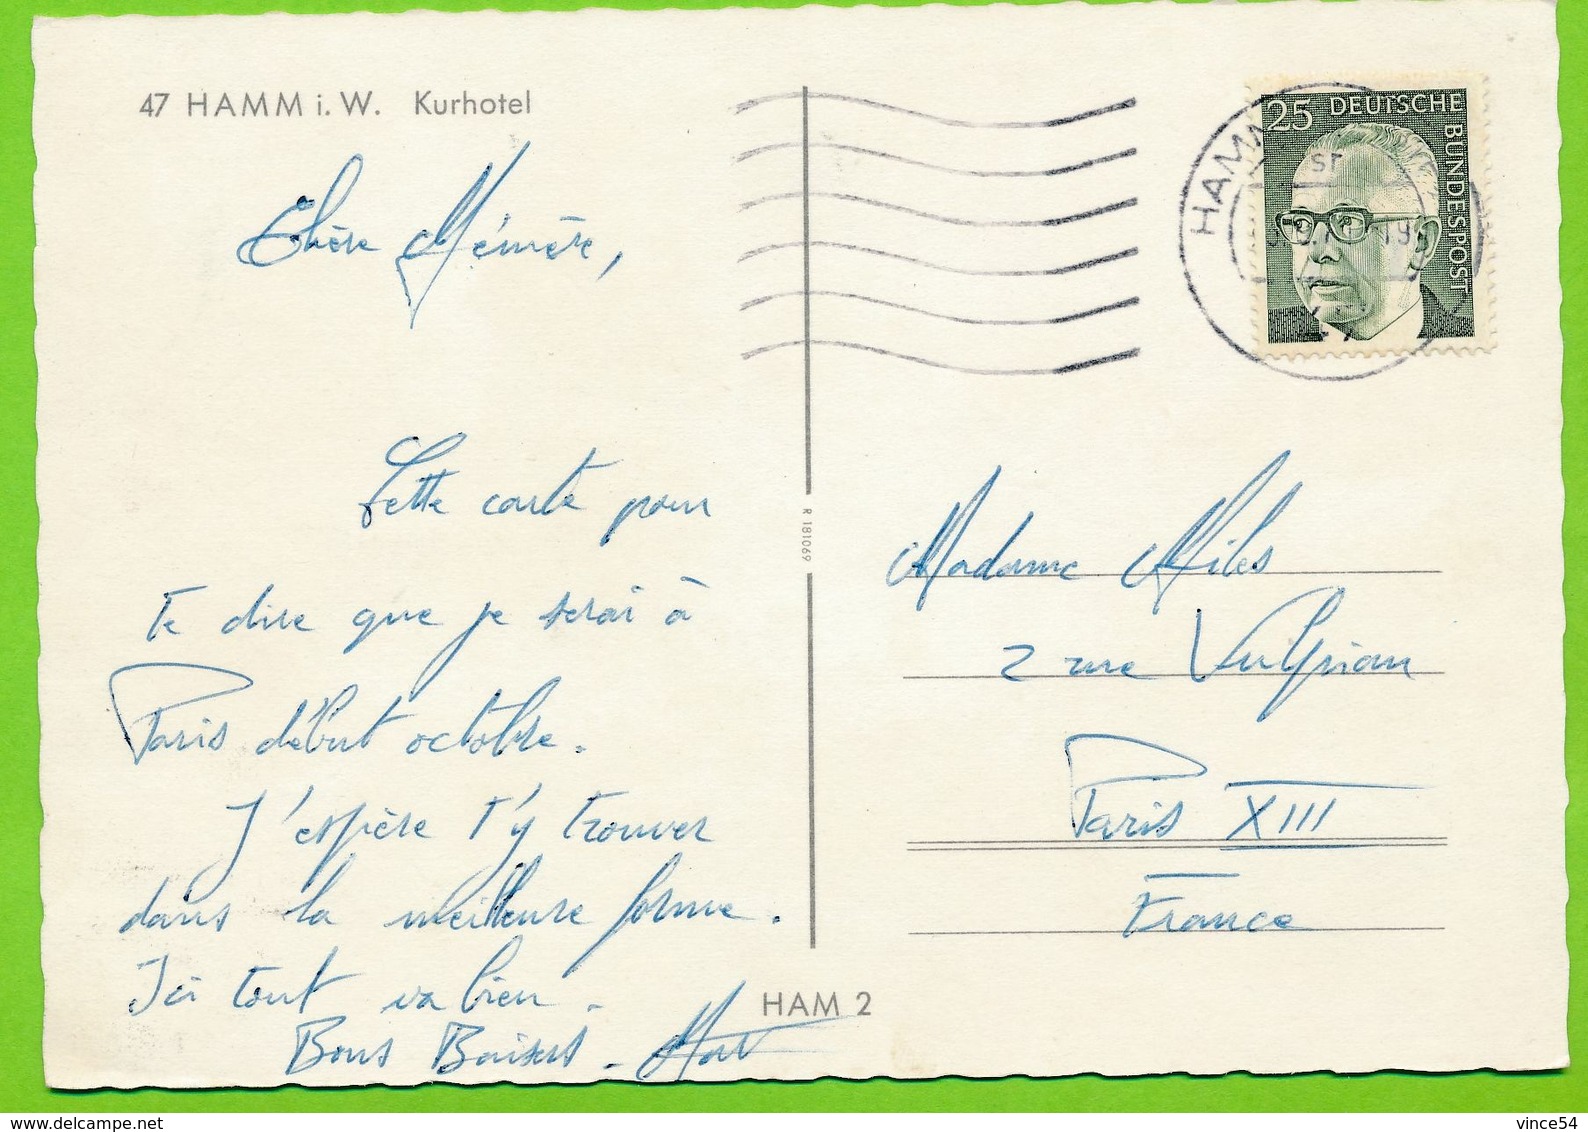 47 HAMM i. W. Kurhotel
25 DEUTSCHE BUNDESPOST
HAMM
Chère Mémère,
Cette carte pour
te dire que je serai à
Paris début octobre.
J'espère t'y trouver
dans la meilleure forme.
Ici tout va bien.
Bons Baisers.
R 181069
HAM 2
Madame Miles
2 rue Vulpian
Paris XIII
France
delcampe.net
vince54